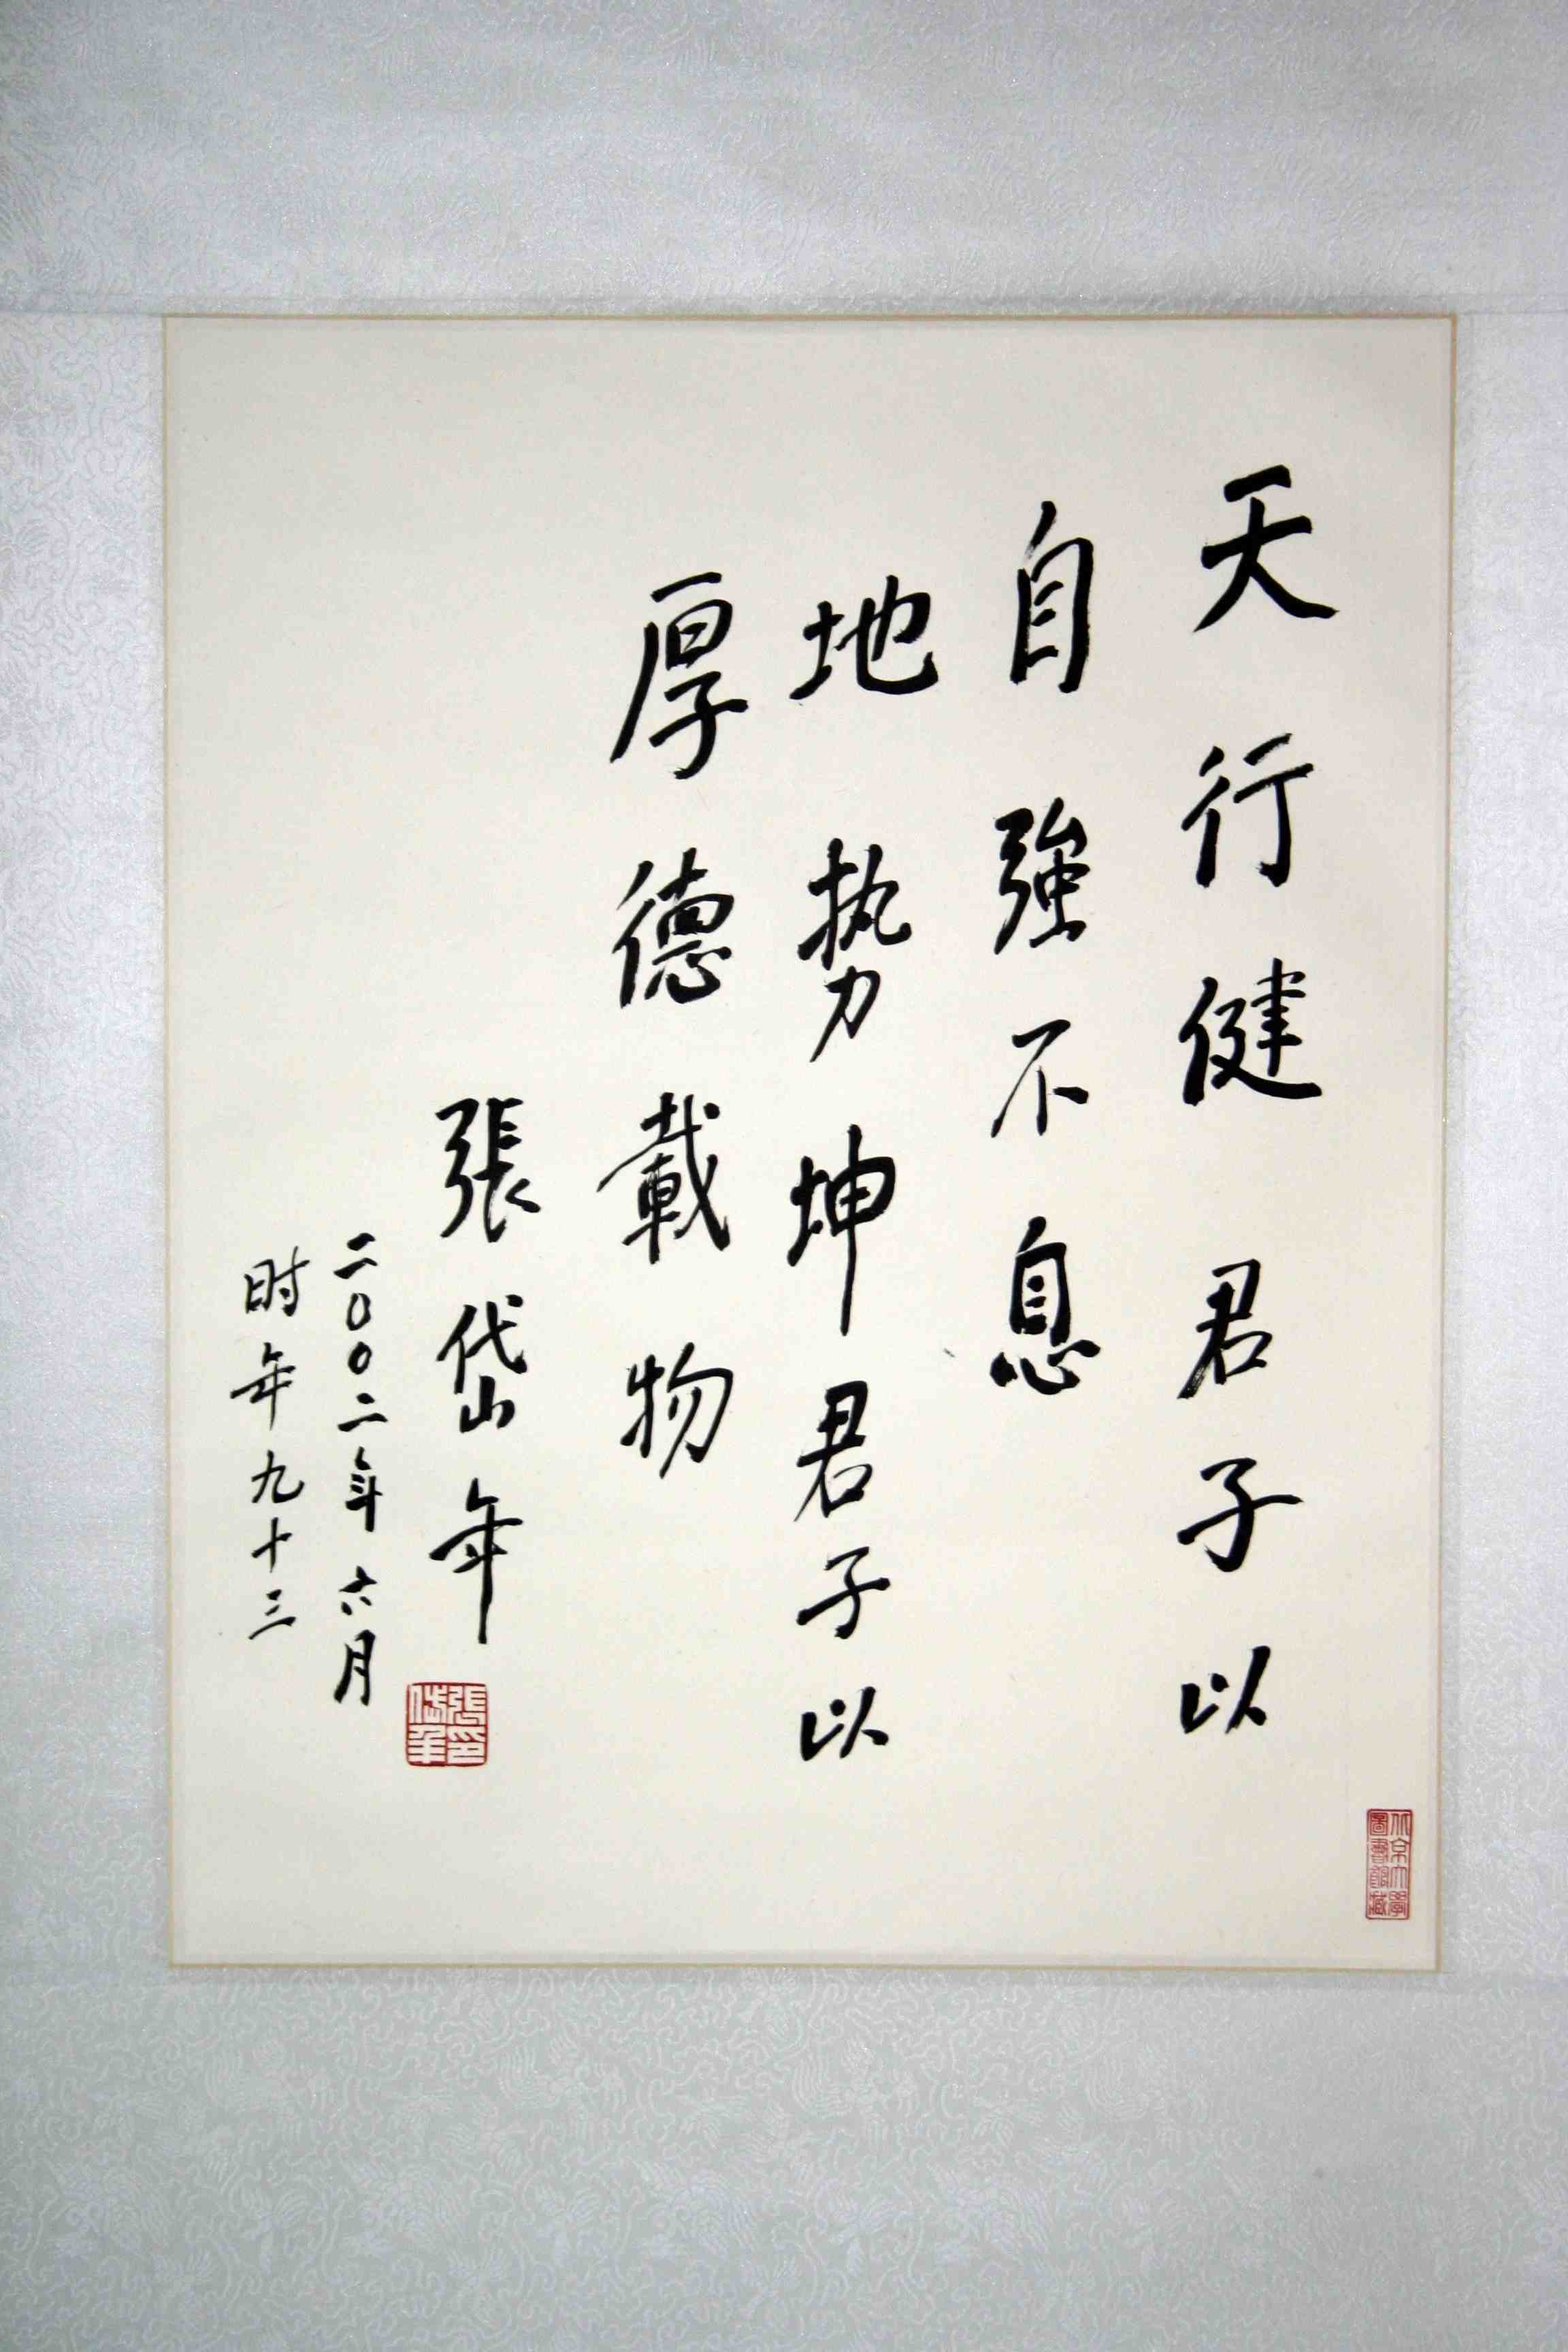 天行健君子以
自強不息
地势坤君子以
厚德載物
張岱年
二〇〇二年六月
时年九十三
張岱年印
北京大學
圖書館藏